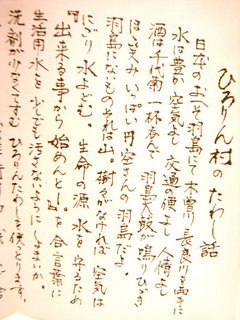 ひろりん村のたわし話
日本のまん中羽島にて木曽川長良川を両手に
水は豊か空気よし 交通便よし 人情よし
酒は千代菊一杯呑んで 羽島太鼓が鳴りひびき
ほゝ笑みいっぱい円空さんの羽島だよ。
羽島にないものそれは山。樹がなければ 空気は
にごり 水よどむ。生命の源 水を守るため
『出来る事から 始めんとー』を合言葉に
生活用水を少しでも汚さないようにしまいか。
洗剤が少なくてすむ ひろりんたわしを使っとります。